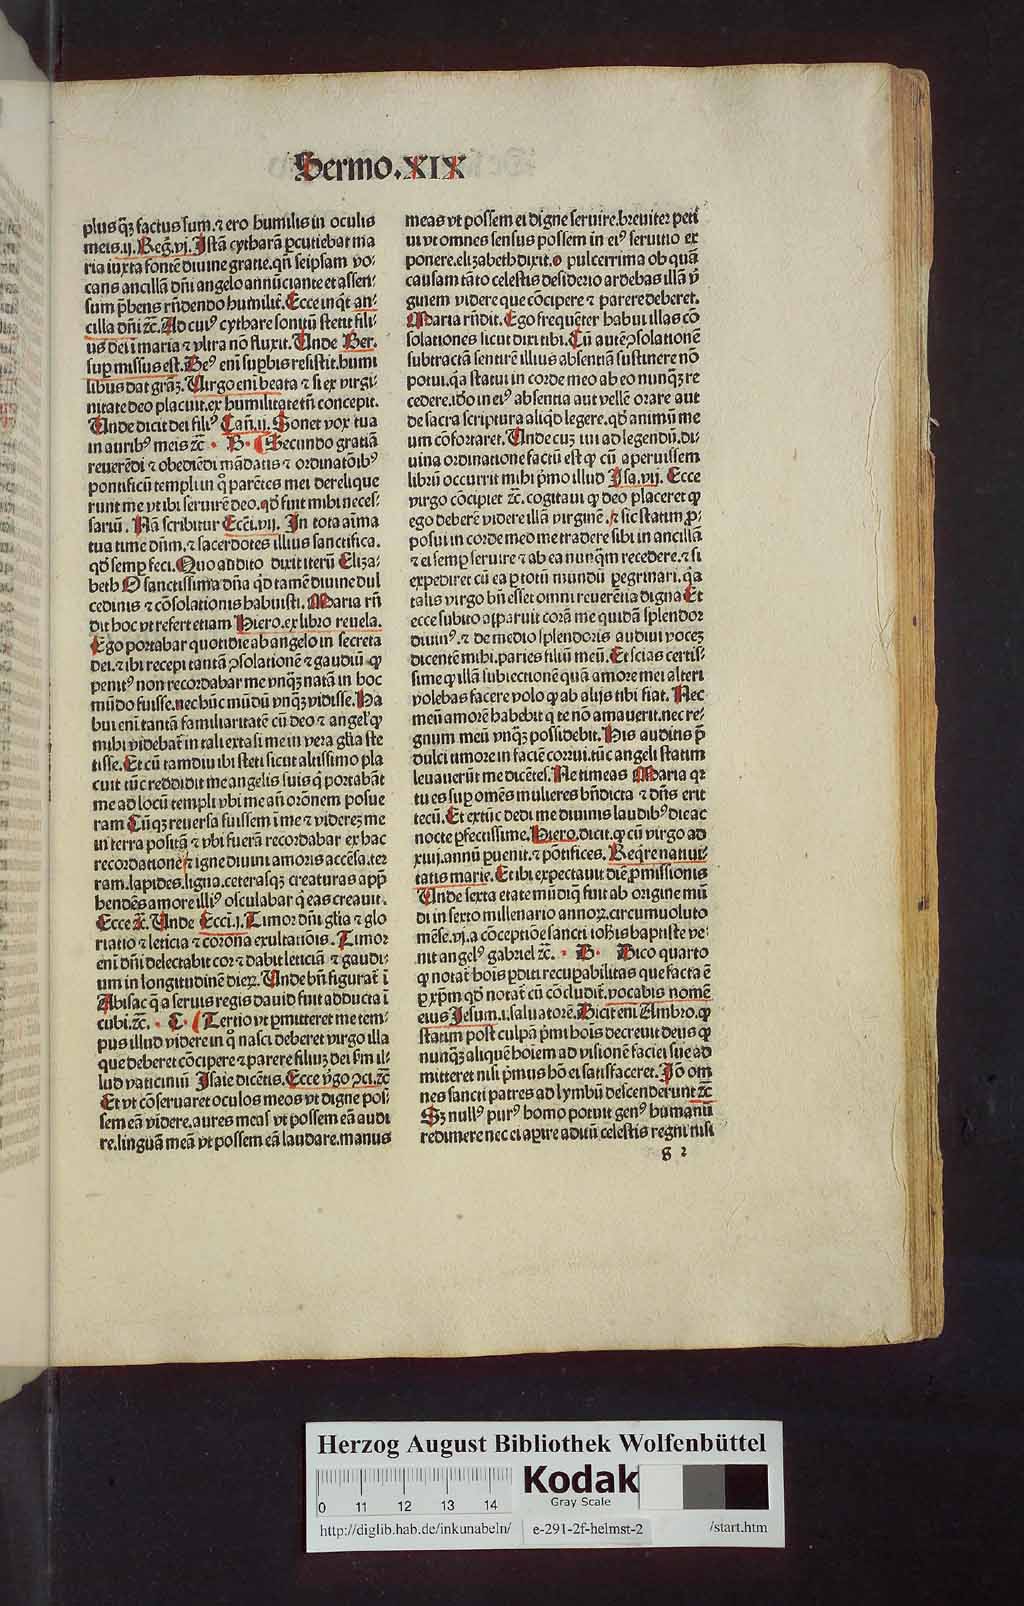 Sermo.XIX
plus q̄ꝫ factus sum.⁊ ero humilis in oculis
meis.ij. Reg̃.vj. Istã cytharã ꝑcutiebat ma
ria iuxta fontē diuine gratie.qñ seipsam vo-
cans ancillã dñi angelo annūciante et assen-
sum p̄bens rñdendo humilit̃. Ecce inq̃t an-
cilla dñi ⁊c̃. Ad cuiꝰ cythare sonitū stetit fili-
us dei i maria ⁊ vltra nō fluxit. Unde Ber.
suꝑ missus est. Deꝰ eni suꝑbis resistit.humi
libus dat grãꝫ. Uirgo eni beata ⁊ si ex virgi-
nitate deo placuit.ex humilitate tñ concepit.
Unde dicit dei filiꝰ Cañ.ij. Sonet vox tua
in auribꝰ meis ⁊c̃ · B · Secundo gratiã
reuerēdi ⁊ obediēdi mãdatis ⁊ ordinatōibꝰ
pontificū templi in q̊ parētes mei derelique
runt me vt ibi seruirē deo.qd̃ fuit mihi neces-
sariū. Nã scribitur Ecc̃i.vij. In tota aīma
tua time dñm.⁊ sacerdotes illius sanctifica.
qd̃ semꝑ feci. Quo audito dixit iterū Eliza-
beth O sanctissima dña qd̃ tamē diuine dul
cedinis ⁊ cōsolationis habuisti. Maria rñ
dit hoc vt refert etiam Hiero.ex libro reuela.
Ego portabar quotidie ab angelo in secreta
dei.⁊ ibi recepi tantã ↄsolationē ⁊ gaudiū ꝙ
penitꝰ non recordabar me vnq̄ꝫ natã in hoc
mūdo fuisse.nec hūc mūdū vnq̄ꝫ vidisse. Ha
bui eni tantã familiaritatē cū deo ⁊ angel' ꝙ
mihi videbat̃ in tali extasi me in vera gl̃ia ste
tisse. Et cū tamdiu ibi steti sicut altissimo pla
cuit tūc reddidit me angelis suis q̇ portabãt
me ad locū templi vbi me añ orōnem posue
ram Cūqꝫ reuersa fuissem i me ⁊ viderēꝫ me
in terra positã ⁊ vbi fuerã recordabar ex hac
recordatione ⁊ igne diuini amoris accēsa.ter
ram.lapides.ligna.ceterasqꝫ creaturas app̃
hendēs amore illiꝰ osculabar q̇ eas creauit.
Ecce ⁊c̃. Unde Ecc̃i.j. Timor dñi gl̃ia ⁊ glo
riatio ⁊ leticia ⁊ corona exultatiōis. Timor
eni dñi delectabit cor ⁊ dabit leticiã ⁊ gaudi-
um in longitudinē dieꝝ. Unde bñ figurat̃ i
Abisac q̃ a seruis regis dauid fuit adducta i
cubi.⁊c̃. · C · Tertio vt ꝑmitteret me tem-
pus illud videre in q̊ nasci deberet virgo illa
que deberet cōcipere ⁊ parere filiuꝫ dei s̃m il-
lud vaticiniū Isaie dicētis. Ecce v̇go ↄci.⁊c̃
Et vt cōseruaret oculos meos vt digne pos-
sem eã videre.aures meas vt possem eã audi
re.linguã meã vt possem eã laudare.manus
meas vt possem ei digne seruire.breuiter peti
ui vt omnes sensus possem in eiꝰ seruitio ex
ponere.elizabeth dixit.o pulcerrima ob quã
causam tãto celestis desiderio ardebas illã v̇
ginem videre que cōcipere ⁊ parere deberet.
Maria rñdit. Ego frequēter habui illas cō
solationes sicut dixi tibi. Cū autē ↄsolationē
subtractã sentirē illius absentiã sustinere nō
potui.q̃a statui in corde meo ab eo nunq̄ꝫ re
cedere.iḋo in eiꝰ absentia aut vellē orare aut
de sacra scriptura aliqd̃ legere.qd̃ animū me
um cōfortaret. Unde cuꝫ iui ad legendū.di-
uina ordinatione factū est ꝙ cū aperuissem
librū occurrit mihi ṗmo illud Isa.vij. Ecce
virgo cōcipiet ⁊c̃. cogitaui ꝙ deo placeret ꝙ
ego deberē videre illã virginē.⁊ sic statim ꝓ-
posui in corde meo me tradere sibi in ancillã
⁊ ei semꝑ seruire ⁊ ab ea nunq̃m recedere.⁊ si
expediret cū ea ꝑ totū mundū ꝑegrinari.q̃a
talis virgo bñ esset omni reuerētia digna Et
ecce subito apparuit corã me quidã splendor
diuinꝰ.⁊ de medio splendoris audiui voceꝫ
dicentē mihi.paries filiū meū. Et scias certis-
sime ꝙ illã subiectionē quã amore mei alteri
volebas facere volo ꝙ ab alijs tibi fiat. Nec
meū amorē habebit q̇ te nō amauerit.nec re-
gnum meū vnq̄ꝫ possidebit. His auditis p̃
dulci timore in faciē corrui.tūc angeli statim
leuauerūt me dicētes. Ne timeas Maria qꝛ
tu es suꝑ omēs mulieres bñdicta ⁊ dñs erit
tecū. Et extūc dedi me diuinis laudibꝰ die ac
nocte ꝑfectissime. Hiero.dicit.ꝙ cū virgo ad
xiiij.annū ꝑuenit.⁊ pōtifices. Req̇re natiui-
tatis marie. Et ibi expectauit diē ꝓmissionis
Unde sexta etate mūdi q̃ fuit ab origine mū
di in sexto millenario annoꝝ.circumuoluto
mēse.vj.a cōceptiōe sancti ioh̃is baptiste ve-
nit angelꝰ gabriel ⁊c̃. · D · Dico quarto
ꝙ notat̃ hoīs ꝑditi recuꝑabilitas que facta ē
ꝑ xp̃m qd̃ notat̃ cū cōcludit̃.vocabis nomē
eius Jesum.i.saluatorē. Dicit eni Ambro.ꝙ
statim post culpã ṗmi hoīs decreuit deus ꝙ
nunq̄ꝫ aliquē hoīem ad visionē faciei sue ad
mitteret nisi ṗmus hō ei satisfaceret. Iō om
nes sancti patres ad lymbū descenderunt ⁊c̃
Sꝫ nullꝰ purꝰ homo potuit genꝰ humanū
redimere nec ei aꝑire aditū celestis regni nisi
g 2
Herzog August Bibliothek Wolfenbüttel
0 11 12 13 14
Kodak
Gray Scale
http://diglib.hab.de/inkunabeln/ e-291-2f-helmst-2 /start.htm